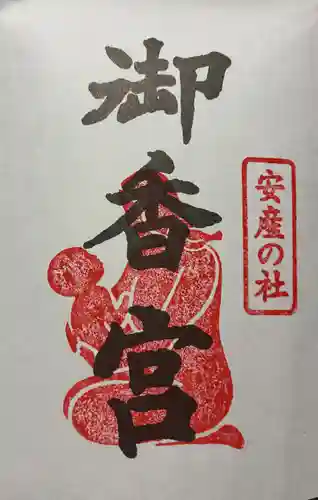 安産の社
御香宮